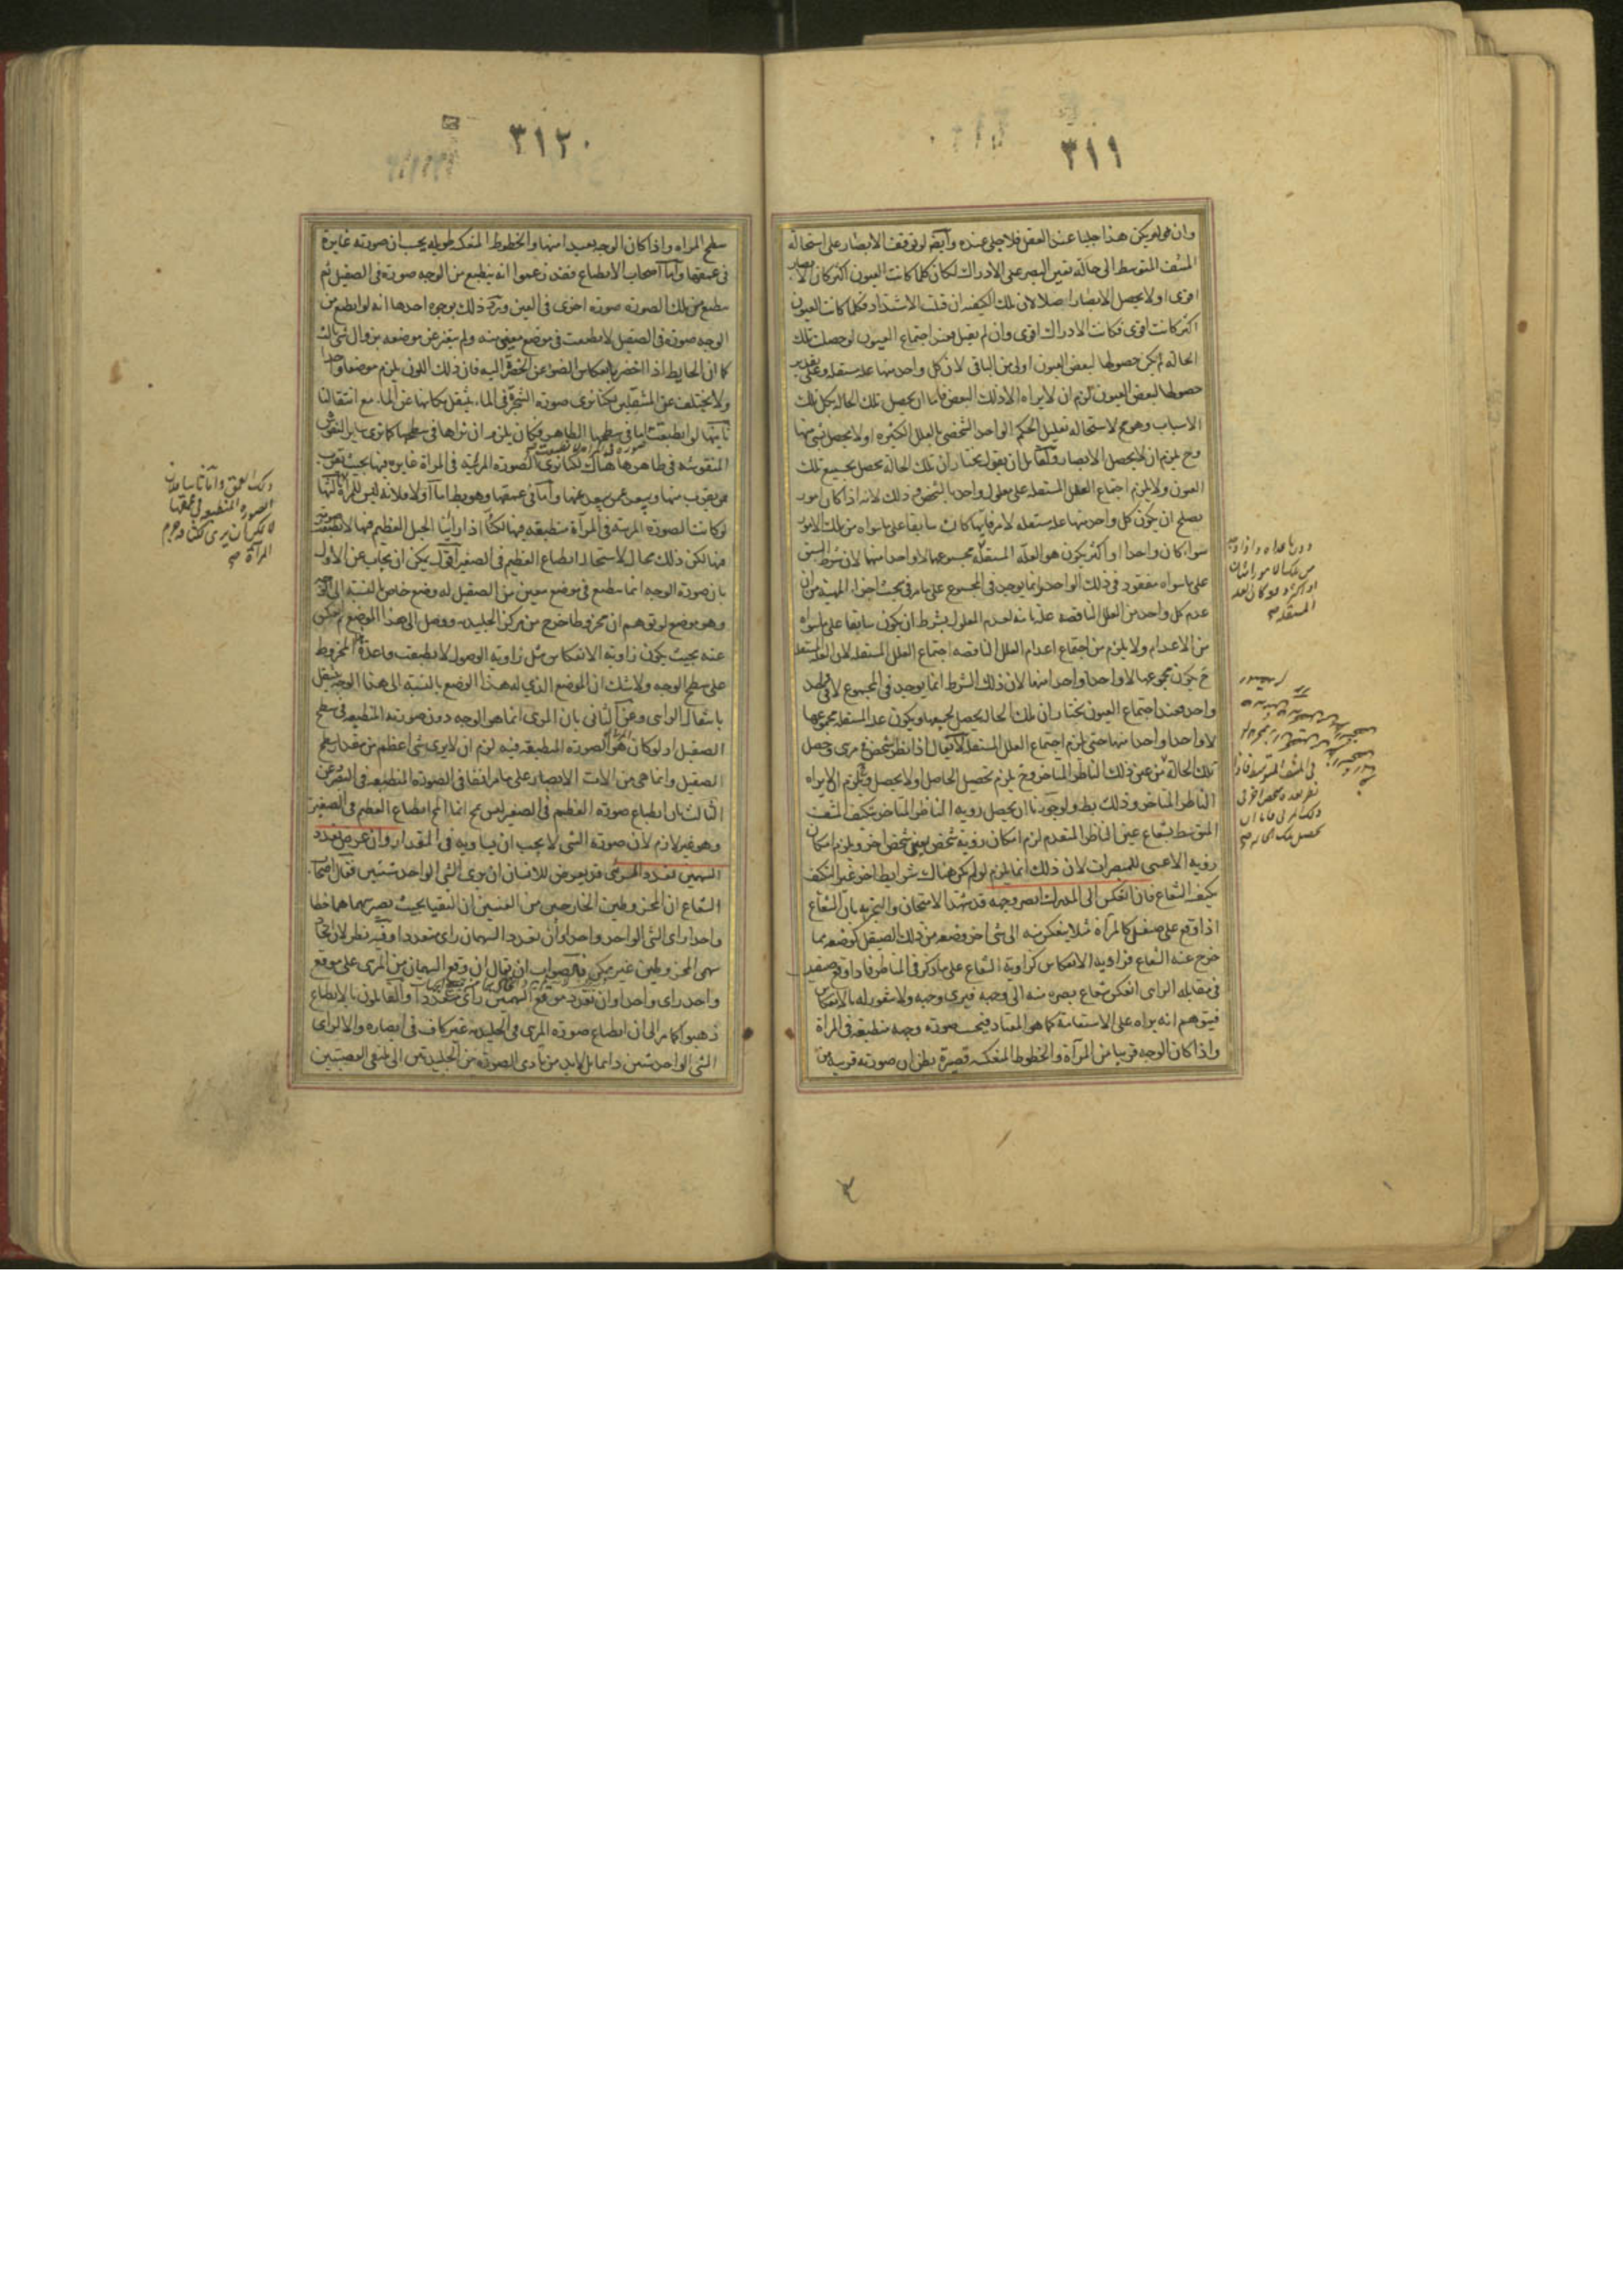 ٣١١
وان لم يكن هذا جليا عند العقل فلا جلي عنده وايضا لو توقف الابصار على استحالة
المشف المتوسط الى حالة تعين البصر على الادراك لكان كلما كانت العيون اكثر كان الابصار
اقوى او لا يحصل الابصار اصلا لان تلك الكيفية ان قبلت الاشتداد فكلما كانت العيون
اكثر كانت اقوى فكانت الادراك اقوى وان لم يقبل فعند اجتماع العيون لو حصلت تلك
الحالة لم يكن حصولها لبعض العيون اولى من الباقي لان كل واحد منها علة مستقلة وعلى تقدير
حصولها لبعض العيون لزم ان لا يراه الا ذلك البعض فاما ان يحصل تلك الحالة بكل تلك
الاسباب وهو مح لاستحالة تعليل الحكم الواحد الشخصي بالعلل الكثيرة او لا يحصل بشئ منها
وح يلزم ان لا يحصل الابصار ولقائل ان يقول يختار ان تلك الحالة تحصل بجميع تلك
العيون ولا يلزم اجتماع العلل المستقلة على معلول واحد بالشخص وذلك لانه اذا كان امور
يصلح ان يكون كل واحد منها علة مستقلة لامر فايها كان سابقا على ما سواه من تلك الامور
سواء كان واحدا او اكثر يكون هو العلة المستقلة مجموعهما لا واحد منها لان شرط السبق
على ما سواه مفقود في ذلك الواحد وانما يوجد في المجموع على ما مر في بحث اجزاء المهية من ان
عدم كل واحد من العلل الناقصة علة تامة لعدم المعلول بشرط ان يكون سابقا على ما سواه
من الاعدام ولا يلزم من اجتماع اعدام العلل الناقصة اجتماع العلل المستقلة لان العلة المستقلة
ح يكون مجموعها لا واحدا واحدا منها لان ذلك الشرط انما يوجد في المجموع لا في واحد
واحد فعند اجتماع العيون يختار ان تلك الحالة يحصل بجميعها ويكون علة المستقلة مجموعها
لا واحدا واحدا منها حتى يلزم اجتماع العلل المستقلة لا يقال اذا نظر شخص في مرئى وحصل
تلك الحالة من عين ذلك الناظر المتاخر وح يلزم تحصيل الحاصل او لا يحصل ويلزم ان لا يراه
الناظر المتاخر وذلك بط ولو جوزنا ان يحصل روية الناظر المتاخر بتكيف المشف
المتوسط بشعاع عين الناظر المتقدم لزم امكان روية شخص بعين شخص اخر ويلزم امكان
روية الاعمى للمبصرات لان ذلك انما يلزم لو لم يكن هناك شرايط اخر غير التكيف
بكيف الشعاع فان انعكس الى المدرك ابصر وجهه قد شهد الامتحان والتجربة بان الشعاع
اذا وقع على صقيل كالمرآة مثلا ينعكس منه الى شئ اخر وضعه من ذلك الصيقل كوضعه مما
خرج عنه الشعاع فزاوية الانعكاس كزاوية الشعاع على ما ذكر في المناظر فاذا وقع صقيل
في مقابلة الرائى انعكس شعاع بصره منه الى وجهه فيرى وجهه ولا شعور له بالانعكاس
فيتوهم انه يراه على الاستقامة كما هو المعتاد فيحسب صورة وجهه منطبعة في المرآة
واذا كان الوجه قريبا من المرآة والخطوط المنعكسة قصيرة يظن ان صورته قريبة من
٣١٢
سطح المرآة واذا كان الوجه بعيدا منها والخطوط المنعكسة طويلة يحسب ان صورته غايرة
في عمقها واما اصحاب الانطباع فقد زعموا انه ينطبع من الوجه صورة في الصقيل ثم
ينطبع من تلك الصورة صورة اخرى في العين ويرد ذلك بوجوه احدها انه لو انطبع من
الوجه صورة في الصقيل لانطبعت في موضع معين منه ولم يتغير عن موضعه بزوال شئ ثالث
كما ان الحايط اذا اخضر بانعكاس الضوء عن الخضرة اليه فان ذلك اللون يلزم موضعا واحدا
ولا يختلف عن المنتقلين لكنا نرى صورة الشجرة في الماء ينتقل مكانها عن الماء مع انتقالنا
ثانيها لو انطبعت اما في سطحها الظاهر فكان يلزم ان نراها في سطحها كما نرى ساير النقوش
المنقوشة في ظاهرها هناك لكنا نرى الصورة المرئية في المرآة غايرة فيها بحيث يقرب
من يقرب منها ويبعد عن يبعد عنها واما في عمقها وهو بط اما اولا فلانه ليس للمرآة ثالثها
لو كانت الصورة المرئية في المرآة منطبعة فيها لكنا اذا راينا الجبل العظيم فيها لانطبعت صورته
فيها لكن ذلك محال لاستحالة انطباع العظيم في الصغير اقول يمكن ان يجاب عن الاول
بان صورة الوجه انما ينطبع في موضع معين من الصقيل له وضع خاص بالنسبة الى الوجه
وهو موضع لو توهم ان مخروطا خرج من مركز الجليدية ووصل الى هذا الموضع انعكس
عنه بحيث يكون زاوية الانعكاس مثل زاوية الوصول لانطبقت قاعدة المخروط
على سطح الوجه ولا شك ان الموضع الذي له هذا الوضع بالنسبة الى هذا الوجه ينتقل
بانتقال الرائى وعن الثاني بان المرئى انما هو الوجه دون صورته المنطبعة في سطح
الصقيل اذ لو كان هو الصورة المنطبعة فيه لزم ان لا يرى شئ اعظم من مقدار سطح
الصقيل وانما هي من آلات الابصار على ما مر انفا في الصورة المنطبعة في البصر وعن
الثالث بان انطباع صورة العظيم في الصغير ليس مح انما المح انطباع العظيم في الصغير
وهو غير لازم لان صورة الشئ لا يجب ان يساويه في المقدار وان عرض تعدد
السهمين تعدد المرئى قد يعرض للانسان ان يرى الشئ الواحد شيئين فقال اصحاب
الشعاع ان المخروطين الخارجين من العينين ان التقيا بحيث يصير سهماهما خطا
واحدا راى الشئ الواحد واحدا وان تعدد السهمان راى متعددا وفيه نظر لان اتحاد
سهمى المخروطين غير ممكن فالصواب ان يقال ان وقع السهمان من المرئى على موقع
واحد راى واحدا وان تعدد موقع السهمين راى متعددا والقائلون بالانطباع
ذهبوا كما مر الى ان انطباع صورة المرئى في الجليدية غير كاف في ابصاره والا لراى
الشئ الواحد شيئين دائما بل لابد من تادى الصورة من الجليديتين الى ملتقى العصبتين